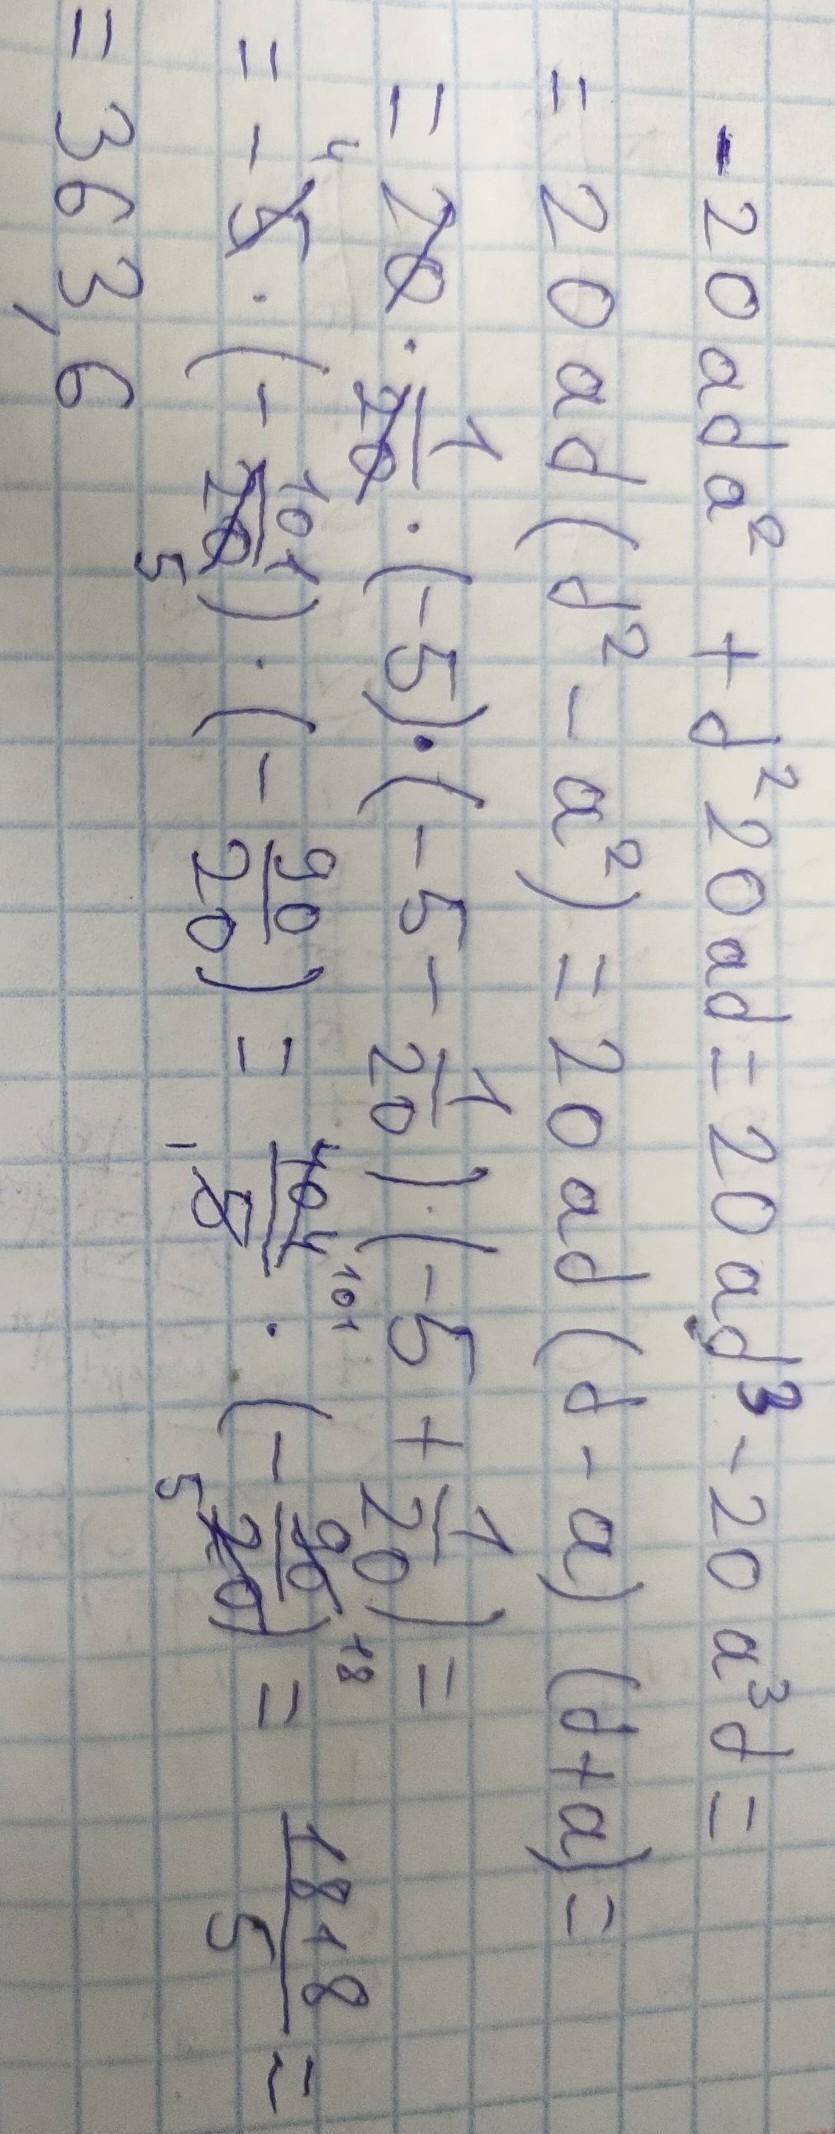 -20ada² + d²20ad = 20ad³ - 20a³d =
= 20ad(d² - a²) = 20ad(d - a)(d + a) =
= 20 · 1/20 · (-5) · (-5 - 1/20) · (-5 + 1/20) =
= -5 · (-101/20) · (-90/20) = 101/5 · (-90/20) = 1818/5 =
= 363,6